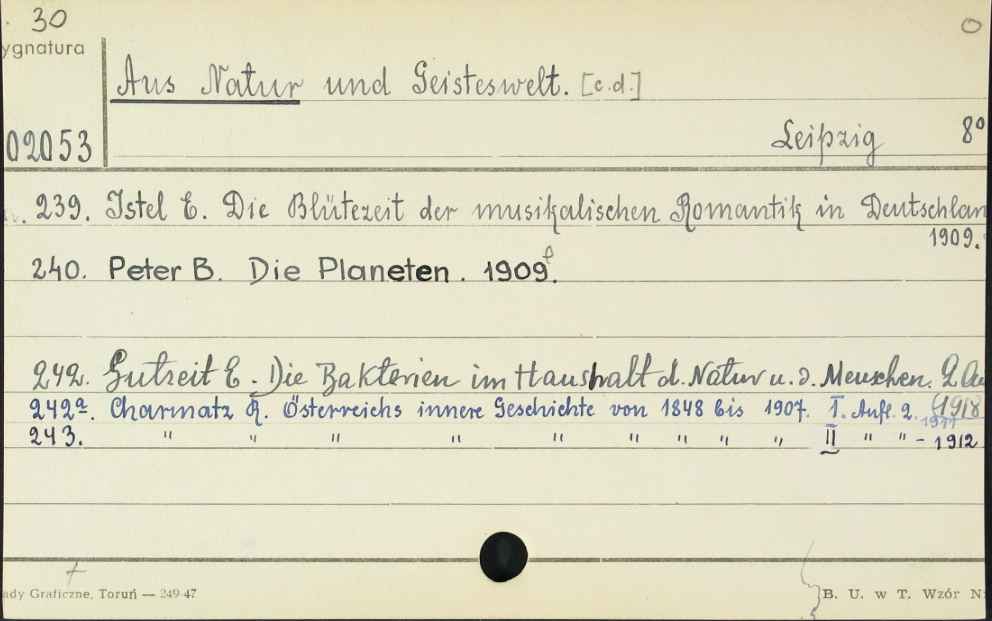 30 0
ygnatura
Aus Natur und Geisteswelt. [c.d.]
02053 Leipzig 8°
239. Istel E. Die Blütezeit der musikalischen Romantik in Deutschlan
1909.
240. Peter B. Die Planeten. 1909.
242. Gutzeit E. Die Bakterien im Haushalt d. Natur u. d. Menschen. 2. Au
(1918
242a. Charmatz R. Österreichs innere Geschichte von 1848 bis 1907. I. Aufl. 2.
1911
243. " " " " " " " " " II " " - 1912
ady Graficzne, Toruń — 249-47 B. U. w T. Wzór N